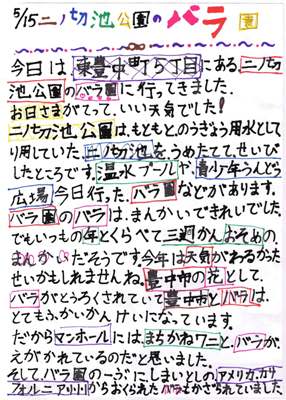 5/15二ノ切池公園のバラ園
今日は、東豊中町5丁目にある、二ノ切
池公園のバラ園に行ってきました。
お日さまがでって、いい天気でした!
二ノ切池公園は、もともとのうぎょう用水として
り用していた、二ノ切池を、うめたてて、せいび
したところです。温水プールや、青少年うんどう
広場、今日行った、バラ園などがあります。
バラ園のバラは、まんかいできれいでした。
でもいつもの年とくらべて三週かんおそめの、
まんかいだそうです。今年は天気がわるかった
せいかもしれませんね。豊中市の花として、
バラがとうろくされていて豊中市とバラは、
とてもふかいかんけいになっています。
だからマンホールには、まちかねワニと、バラが、
えがかれているのだと思いました。
そして、バラ園の一ぶにしまいとしの、アメリカ、カリ
フォルニアりからおくられたバラもかざられていました。